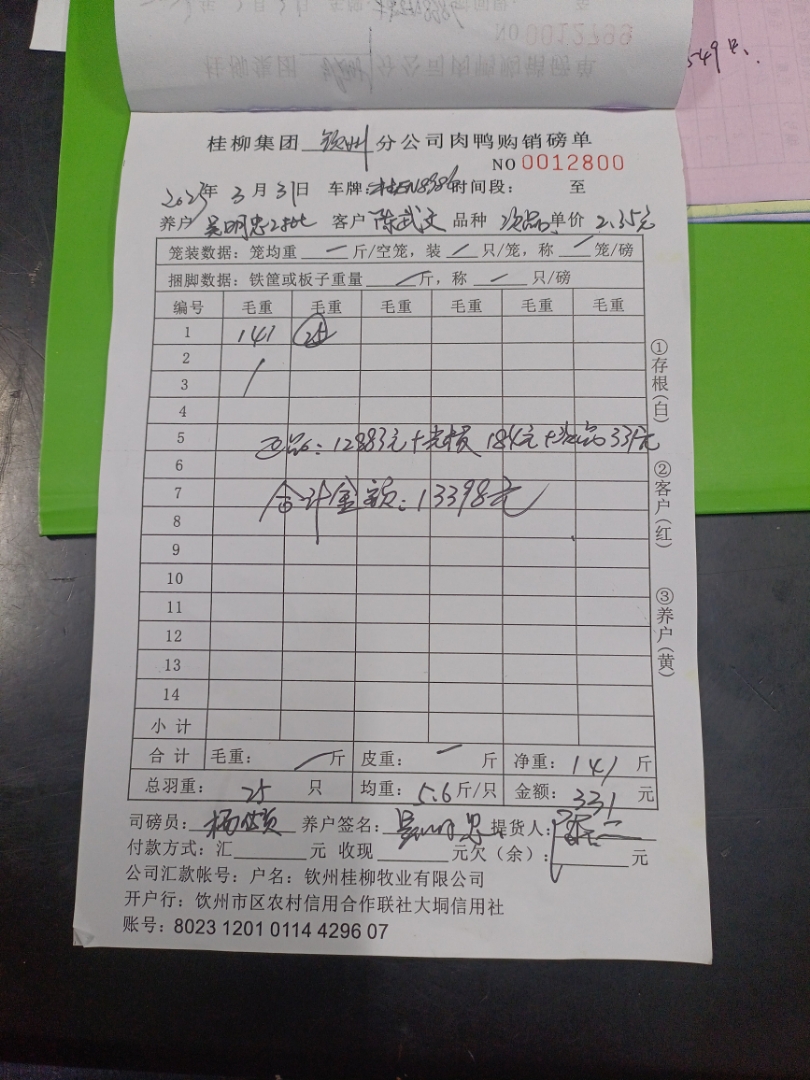 NO 0012799
549只
桂柳集团 钦州 分公司肉鸭购销磅单
NO 0012800
2025年 3月31日 车牌: 时间段: 至
养户 吴明忠 客户 陈武文 品种 次品 单价 2.35元
笼装数据: 笼均重 一 斤/空笼, 装 / 只/笼, 称 / 笼/磅
捆脚数据: 铁筐或板子重量 一 斤, 称 一 只/磅
编号 毛重 毛重 毛重 毛重 毛重 毛重
1 141 25
2
3
4
5 正品: 12883元+光损 184元+次品 331元
6
7 合计金额: 13398元
8
9
10
11
12
13
14
小计
合计 毛重: 一 斤 皮重: 一 斤 净重: 141 斤
总羽重: 25 只 均重: 5.6斤/只 金额: 331 元
司磅员: 养户签名: 吴明忠 提货人:
付款方式: 汇 元 收现 元欠(余): 元
公司汇款帐号: 户名: 钦州桂柳牧业有限公司
开户行: 钦州市区农村信用合作联社大垌信用社
账号: 8023 1201 0114 4296 07
①存根(白)
②客户(红)
③养户(黄)